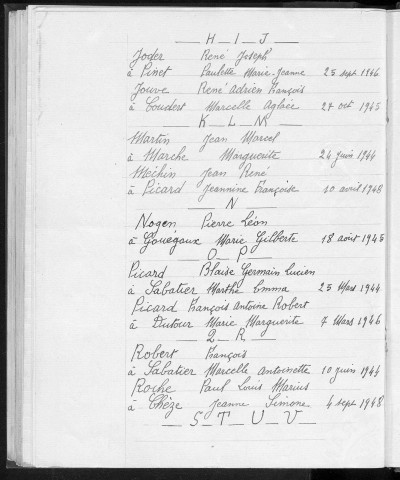 H_I_J
Joder René Joseph
à Pinet Paulette Marie-Jeanne 25 sept 1946
Jouve René Adrien François
à Coudert Marcelle Aglaée 27 oct 1945
K_L_M
Martin Jean Marcel
à Marche Marguerite 24 juin 1944
Méchin Jean René
à Picard Jeannine Françoise 10 avril 1948
_N_
Nogen Pierre Léon
à Gouégoux Marie Gilberte 18 août 1945
_O_P_
Picard Blaise Germain Lucien
à Sabatier Marthe Emma 25 Mars 1944
Picard François Antoine Robert
à Dutour Marie Marguerite 7 Mars 1946
_Q_R_
Robert François
à Sabatier Marcelle Antoinette 10 juin 1944
Roche Paul Louis Marius
à Chèze Jeanne Simone 4 sept 1948
_S_T_U_V_